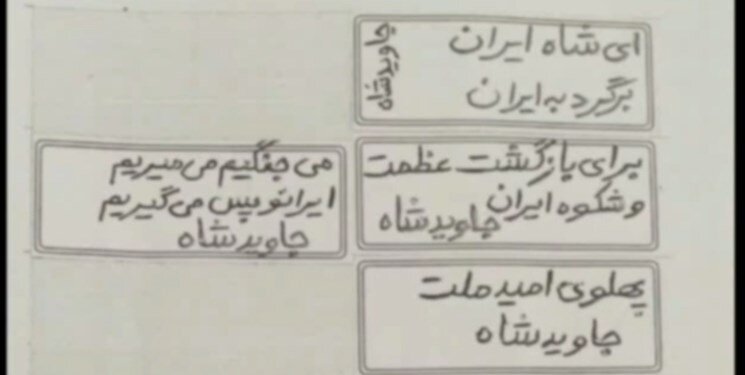 ای شاه ایران
برگرد به ایران
جاویدشاه
برای بازگشت عظمت
و شکوه ایران
جاویدشاه
می جنگیم می میریم
ایرانو پس می گیریم
جاویدشاه
پهلوی امید ملت
جاویدشاه